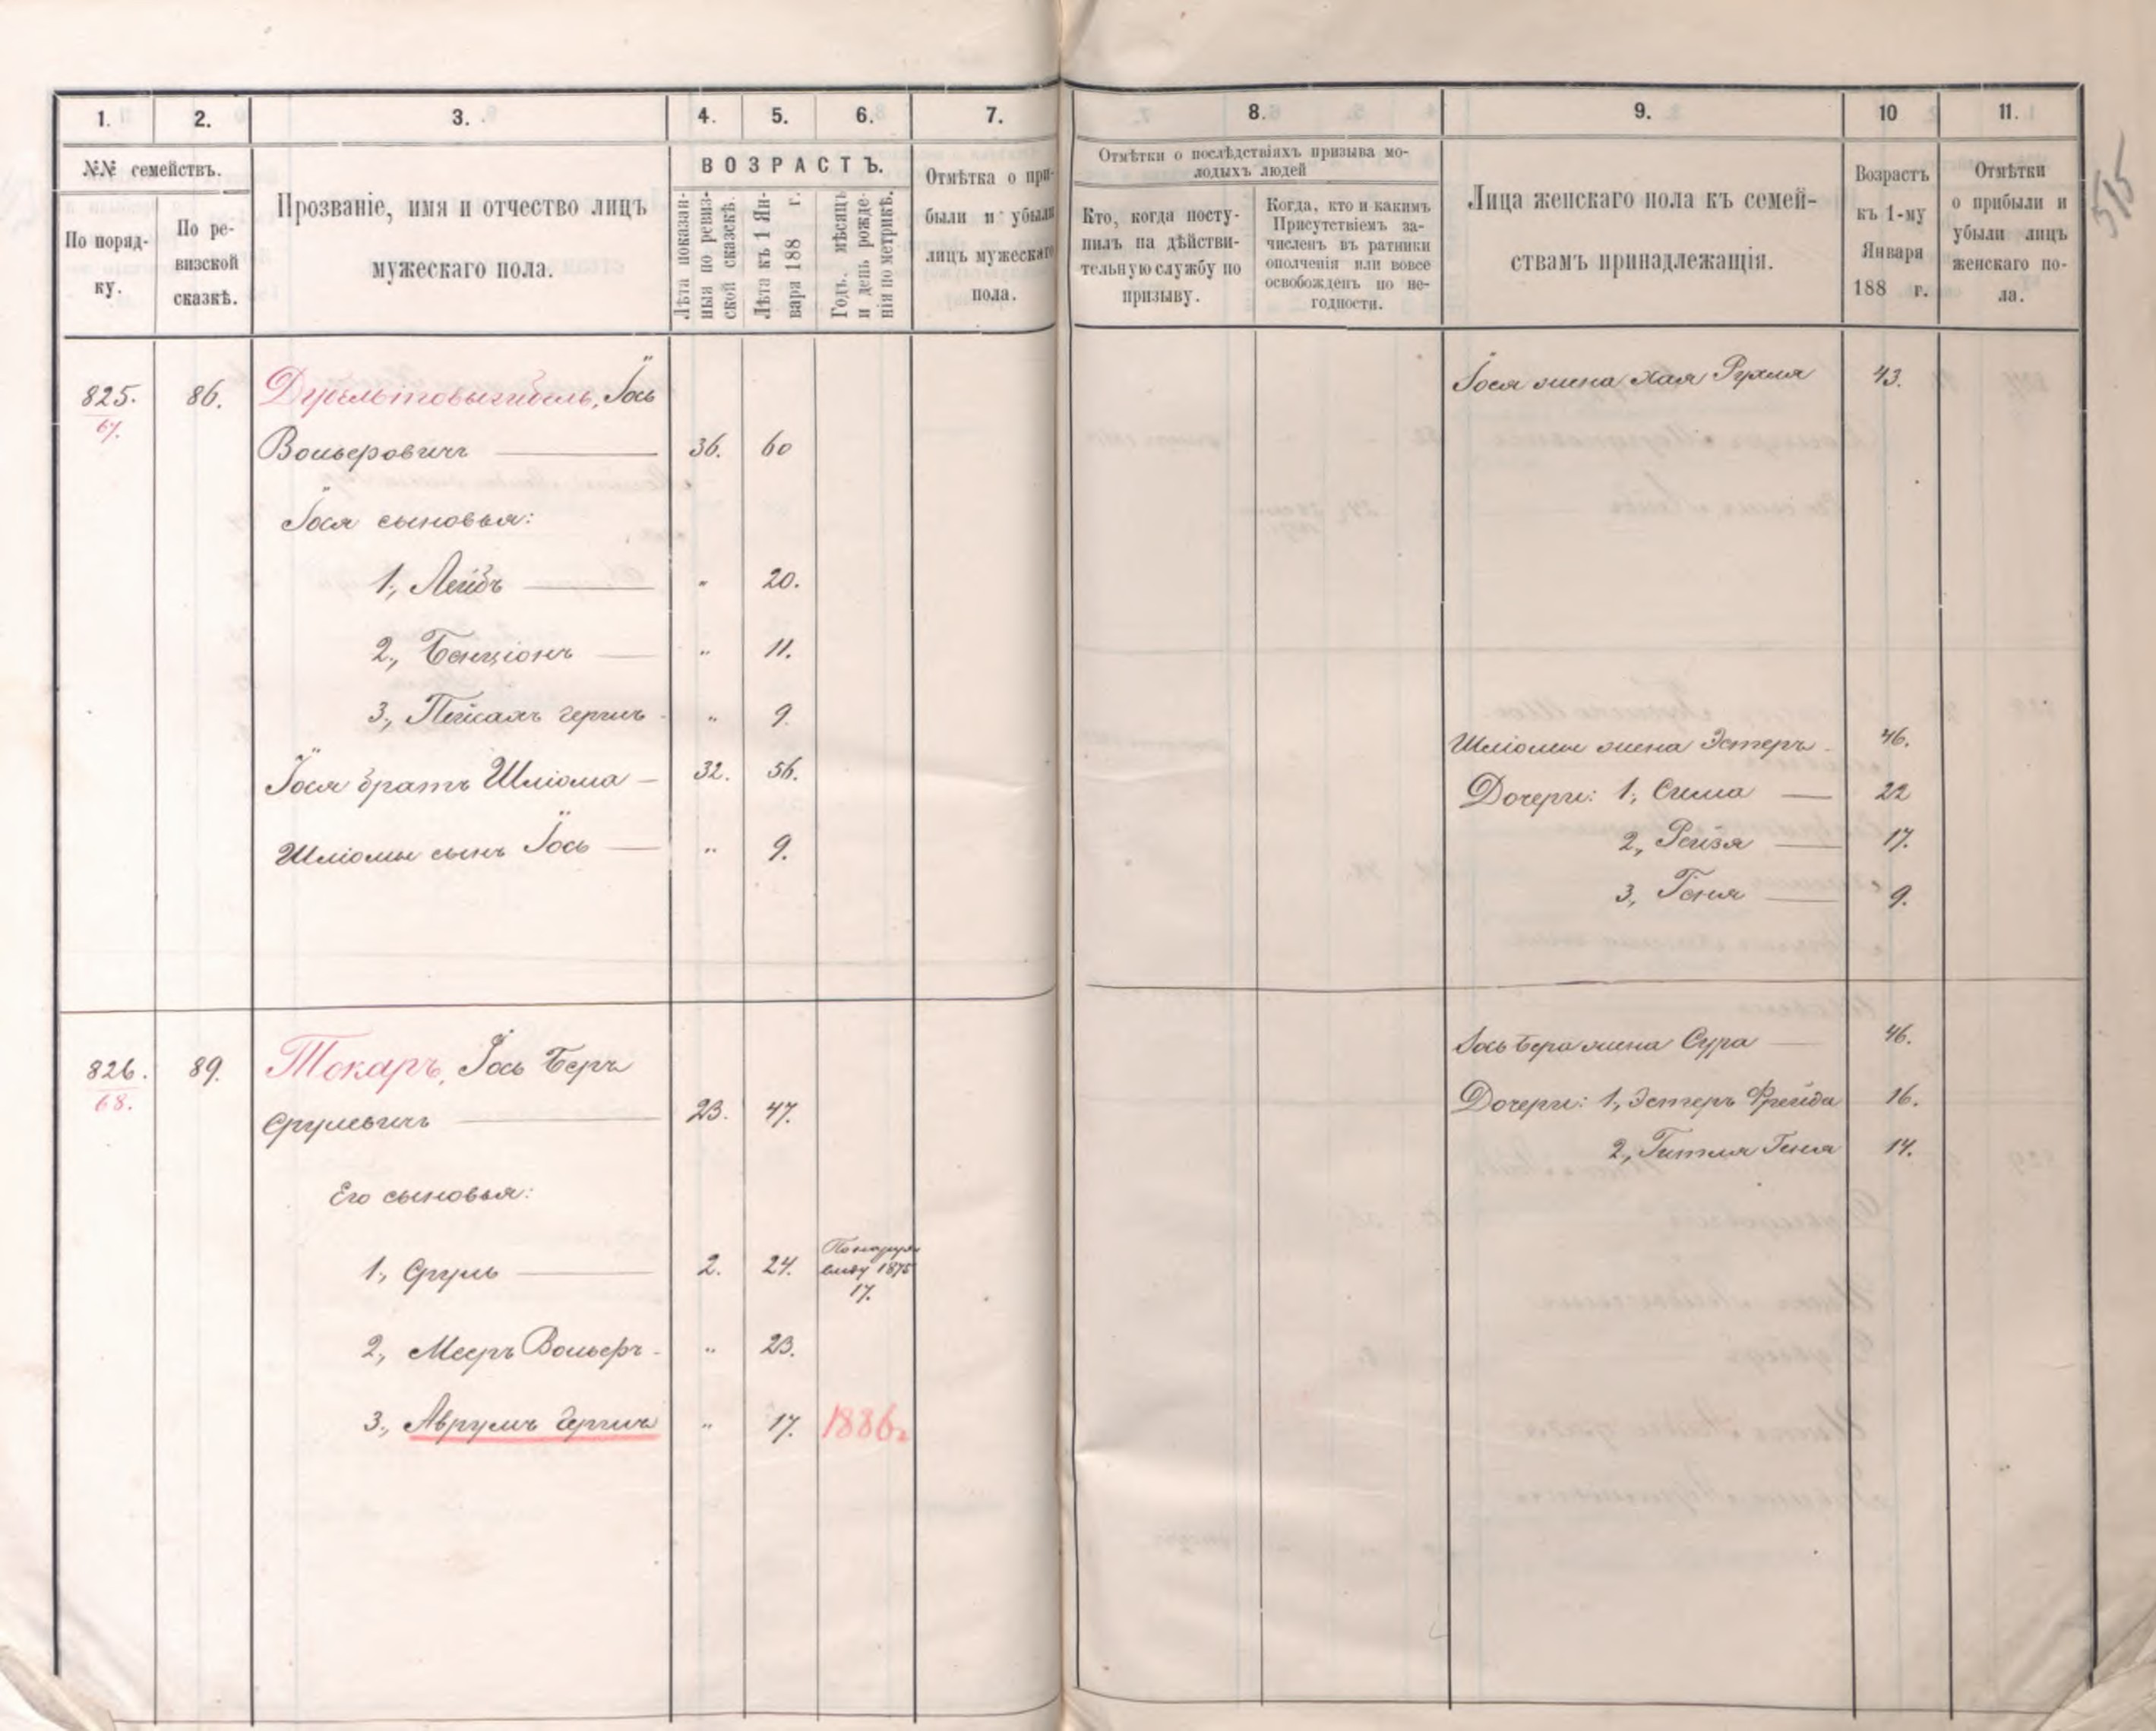 1. 2. 3. 4. 5. 6. 7.
№№ семействъ.
По поряд-
ку.
По ре-
визской
сказкѣ.
Прозваніе, имя и отчество лицъ
мужескаго пола.
ВОЗРАСТЪ.
Лѣта показан-
ныя по ревиз-
ской сказкѣ.
Лѣта къ 1 Ян-
варя 188 г.
Годъ, мѣсяцъ
и день рожде-
нія по метрикѣ.
Отмѣтка о при-
были и убыли
лицъ мужескаго
пола.
825. 86. Іось
67.
Вольфовичъ 36. 60
Іося сыновья:
1, Лейбъ " 20.
2, Бенціонъ " 11.
3, Пейсахъ Гершъ " 9.
Іося братъ Шліома — 32. 56.
Шліомы сынъ Іось " 9.
826. 89. Токаръ, Іось Беръ
68.
Срулевичъ 23. 47.
Его сыновья:
1, Сруль 2. 24. 1875
17.
2, Мееръ Вольфъ " 23.
3, Аврумъ Гершъ " 17. 1886г
8. 9. 10 11.
Отмѣтки о послѣдствіяхъ призыва мо-
лодыхъ людей
Кто, когда посту-
пилъ на дѣйстви-
тельную службу по
призыву.
Когда, кто и какимъ
Присутствіемъ за-
численъ въ ратники
ополченія или вовсе
освобожденъ по не-
годности.
Лица женскаго пола къ семей-
ствамъ принадлежащія.
Возрастъ
къ 1-му
Января
188 г.
Отмѣтки
о прибыли и
убыли лицъ
женскаго по-
ла.
515
Іося жена Хая Рухля 43.
Шліомы жена Эстеръ 46.
Дочери: 1, Сима 22
2, Рейзя 17.
3, Геня 9.
Іось Бера жена Сура 46.
Дочери: 1, Эстеръ Фрейда 16.
2, Гитля Геня 14.